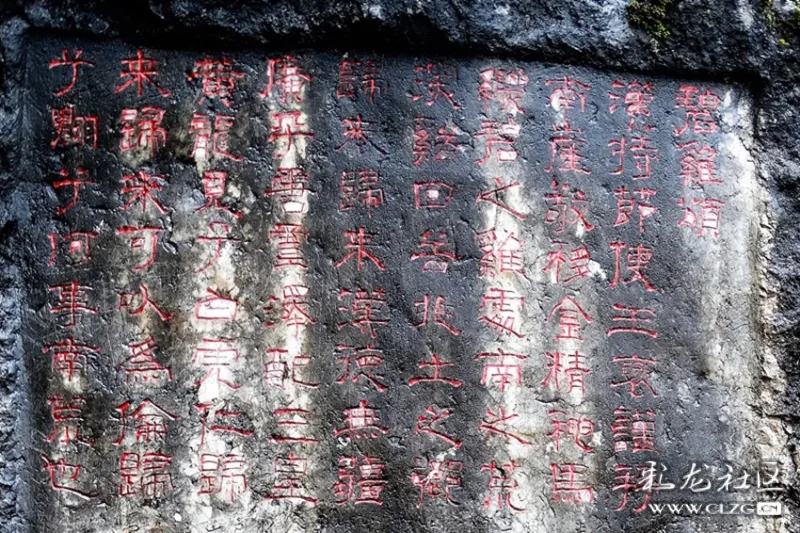 碧雞頌
漢持節使王褒謹拜
南崖敬移金精神馬
縹碧之雞處南之荒
深谿回谷非土之鄉
歸來歸來漢德無疆
廣乎唐虞澤配三皇
黃龍見兮白虎仁歸
來歸來可以為倫歸
兮翔兮何事南荒也
彩龙社区
www.CLZG.CN